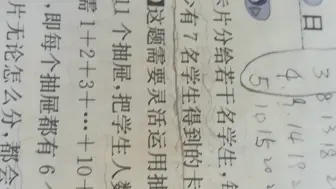 日
3 8 13 18
4. 9. 14 19 2
5 10 15 20 2
卡片分给若干名学生,每
少有7名学生得到的卡
】这题需要灵活运用抽
11个抽屉,把学生人数
需1+2+3+…+10+
,即每个抽屉都有6
片无论怎么分,都会